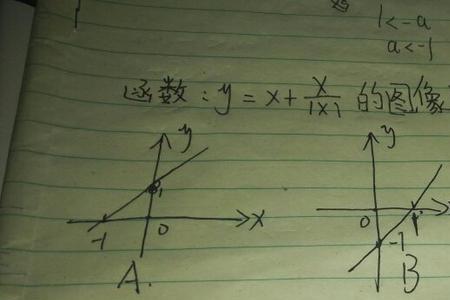 1<-a
a<-1
函数：y=x+x/|x| 的图像
y
y
1
x
-1
0
0
1
-1
A.
B